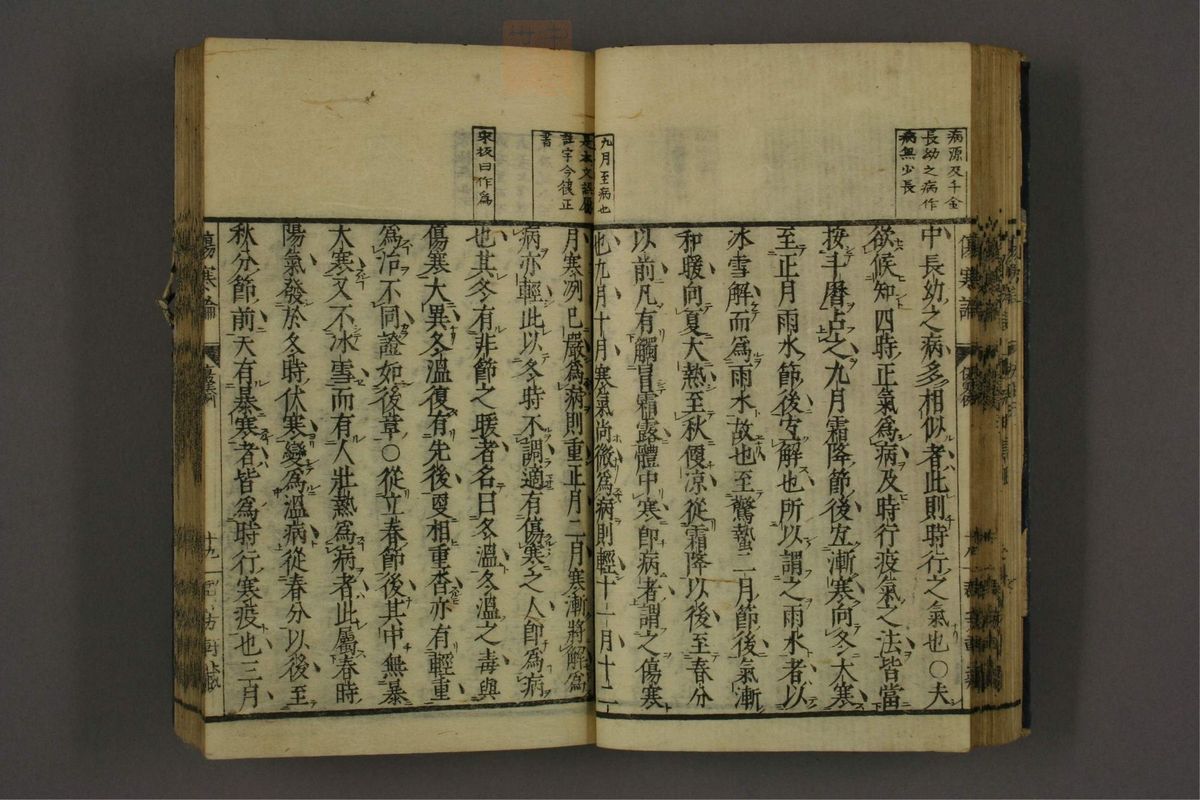 病源及千金
長幼之病作
病無少長
中長幼之病多相似者此則時行之氣也○夫
欲候知四時正氣為病及時行疫氣之法皆當
按斗曆占之九月霜降節後宜漸寒向冬大寒
至正月雨水節後宜解也所以謂之雨水者以
冰雪解而為雨水故也至驚蟄二月節後氣漸
和暖向夏大熱至秋便凉從霜降以後至春分
以前凡有觸冒霜露體中寒即病者謂之傷寒
九月至病也
是本文誤為
註字今復正
書
也九月十月寒氣尚微為病則輕十一月十二
月寒冽已嚴為病則重正月二月寒漸將解為
病亦輕此以冬時不調適有傷寒之人即為病
宋板曰作為
也其冬有非節之暖者名曰冬溫冬溫之毒與
傷寒大異冬溫復有先後更相重沓亦有輕重
為治不同證如後章○從立春節後其中無暴
大寒又不冰雪而有人壯熱為病者此屬春時
陽氣發於冬時伏寒變為溫病從春分以後至
秋分節前天有暴寒者皆為時行寒疫也三月
傷寒論
十九